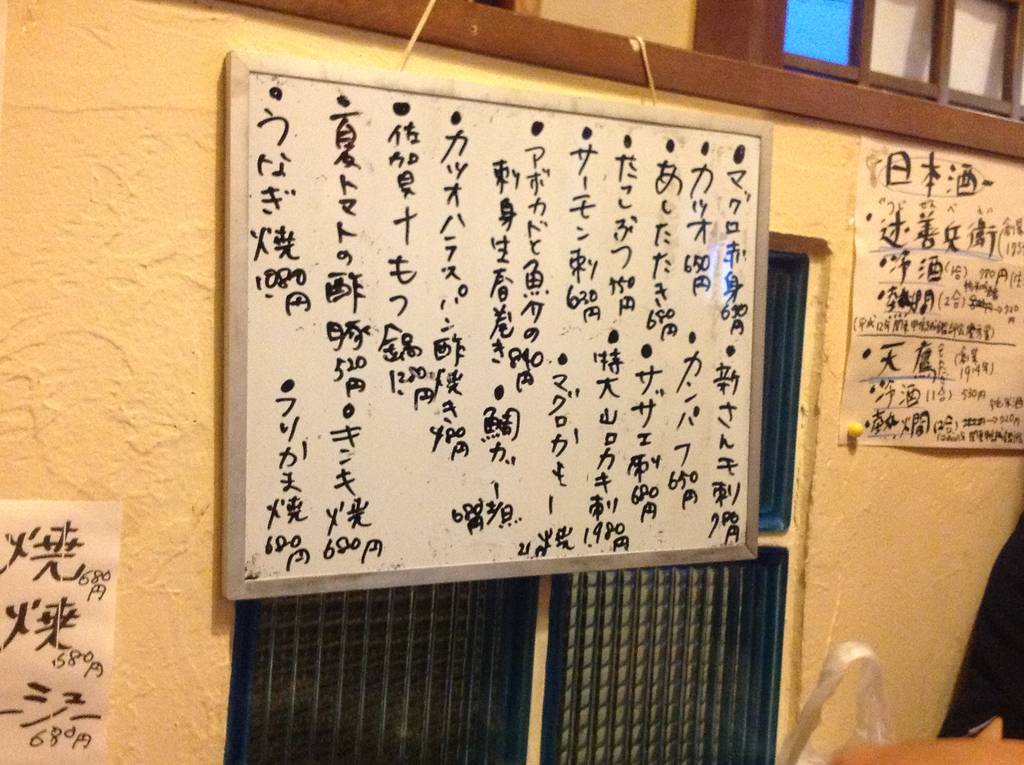 ・マグロ赤身 680円 ・新さんま刺 780円
・カツオ 650円 ・カンパフ 650円
・あじたたき 680円 ・サザエ刺 680円
・たこぶつ 450円 ・特大山口カキ刺 1,980円
・サーモン刺 630円 ・マグロカマ焼
・アボカドと魚介の
刺身生春巻き 840円 ・鯛カ
・カツオハラスパン酢焼き 480円
・佐賀牛もつ鍋 1,280円
・夏トマトの酢豚 520円 ・キンキ焼 680円
・うなぎ焼 1080円 ・ブリカマ焼 680円
日本酒
・述善兵衛
・冷酒(1合)
・熱燗(2合) 920円
・天鷹 (創業1914年)
・冷酒(1合) 530円
・熱燗(2合) 920円
焼 680円
焼 580円
ミュー 680円